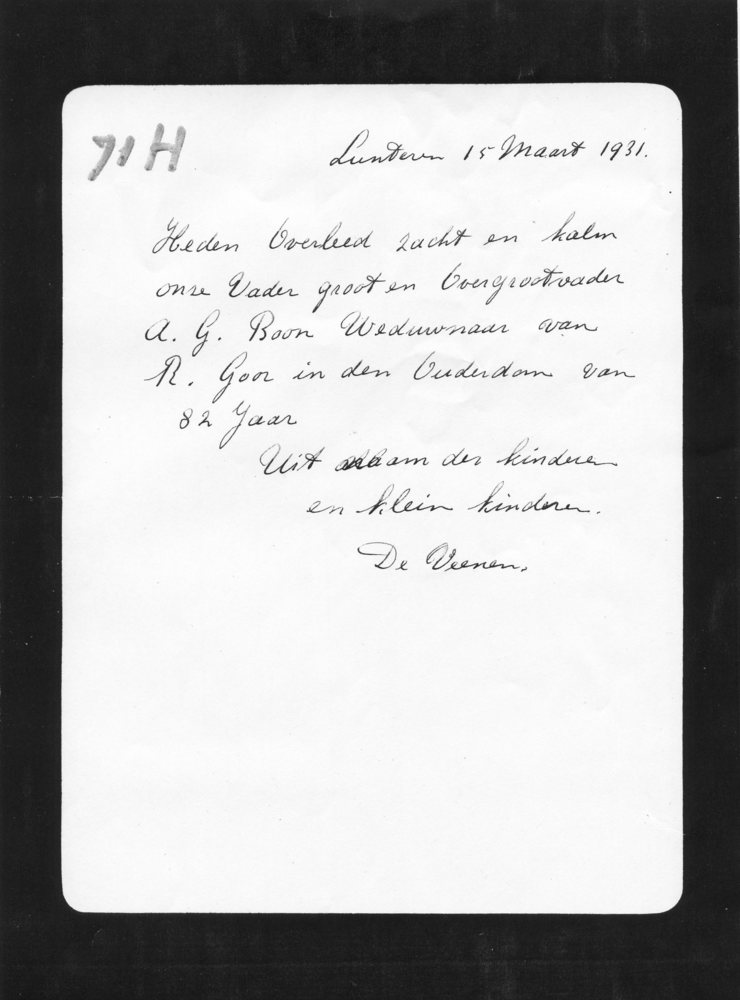 71 H
Lunteren 15 Maart 1931.
Heden Overleed zacht en kalm
onze Vader groot en Overgrootvader
A. G. Boon Weduwnaar van
R. Goor in den Ouderdom van
82 Jaar
Uit naam der kinderen
en klein kinderen.
De Veenen.